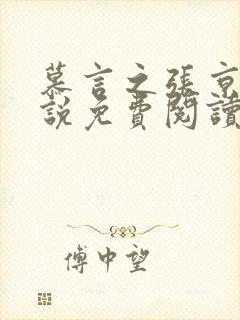 慕言之張京
說免費閱讀
傅中望